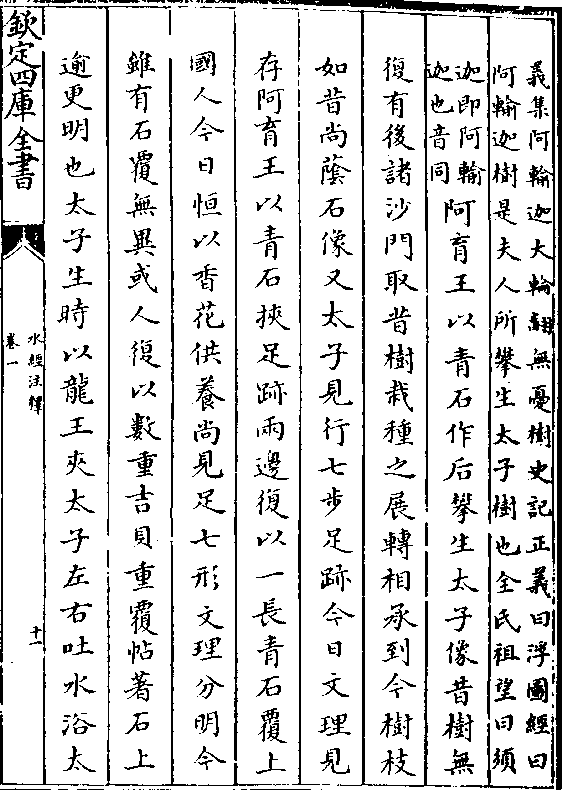 義集阿輸迦大輪翻無憂樹史記正義曰浮圖經曰
阿輸迦樹是夫人所攀生太子樹也全氏祖望曰須
迦即阿輸
迦也音同
阿育王以青石作后攀生太子像昔樹無
復有後諸沙門取昔樹栽種之展轉相承到今樹枝
如昔尚蔭石像又太子見行七步足跡今日文理見
存阿育王以青石挾足跡兩邊復以一長青石覆上
國人今日恒以香花供養尚見足七形文理分明今
雖有石覆無異或人復以數重吉貝重覆帖著石上
逾更明也太子生時以龍王夾太子左右吐水浴太
欽定四庫全書
水經注釋
卷一
十一